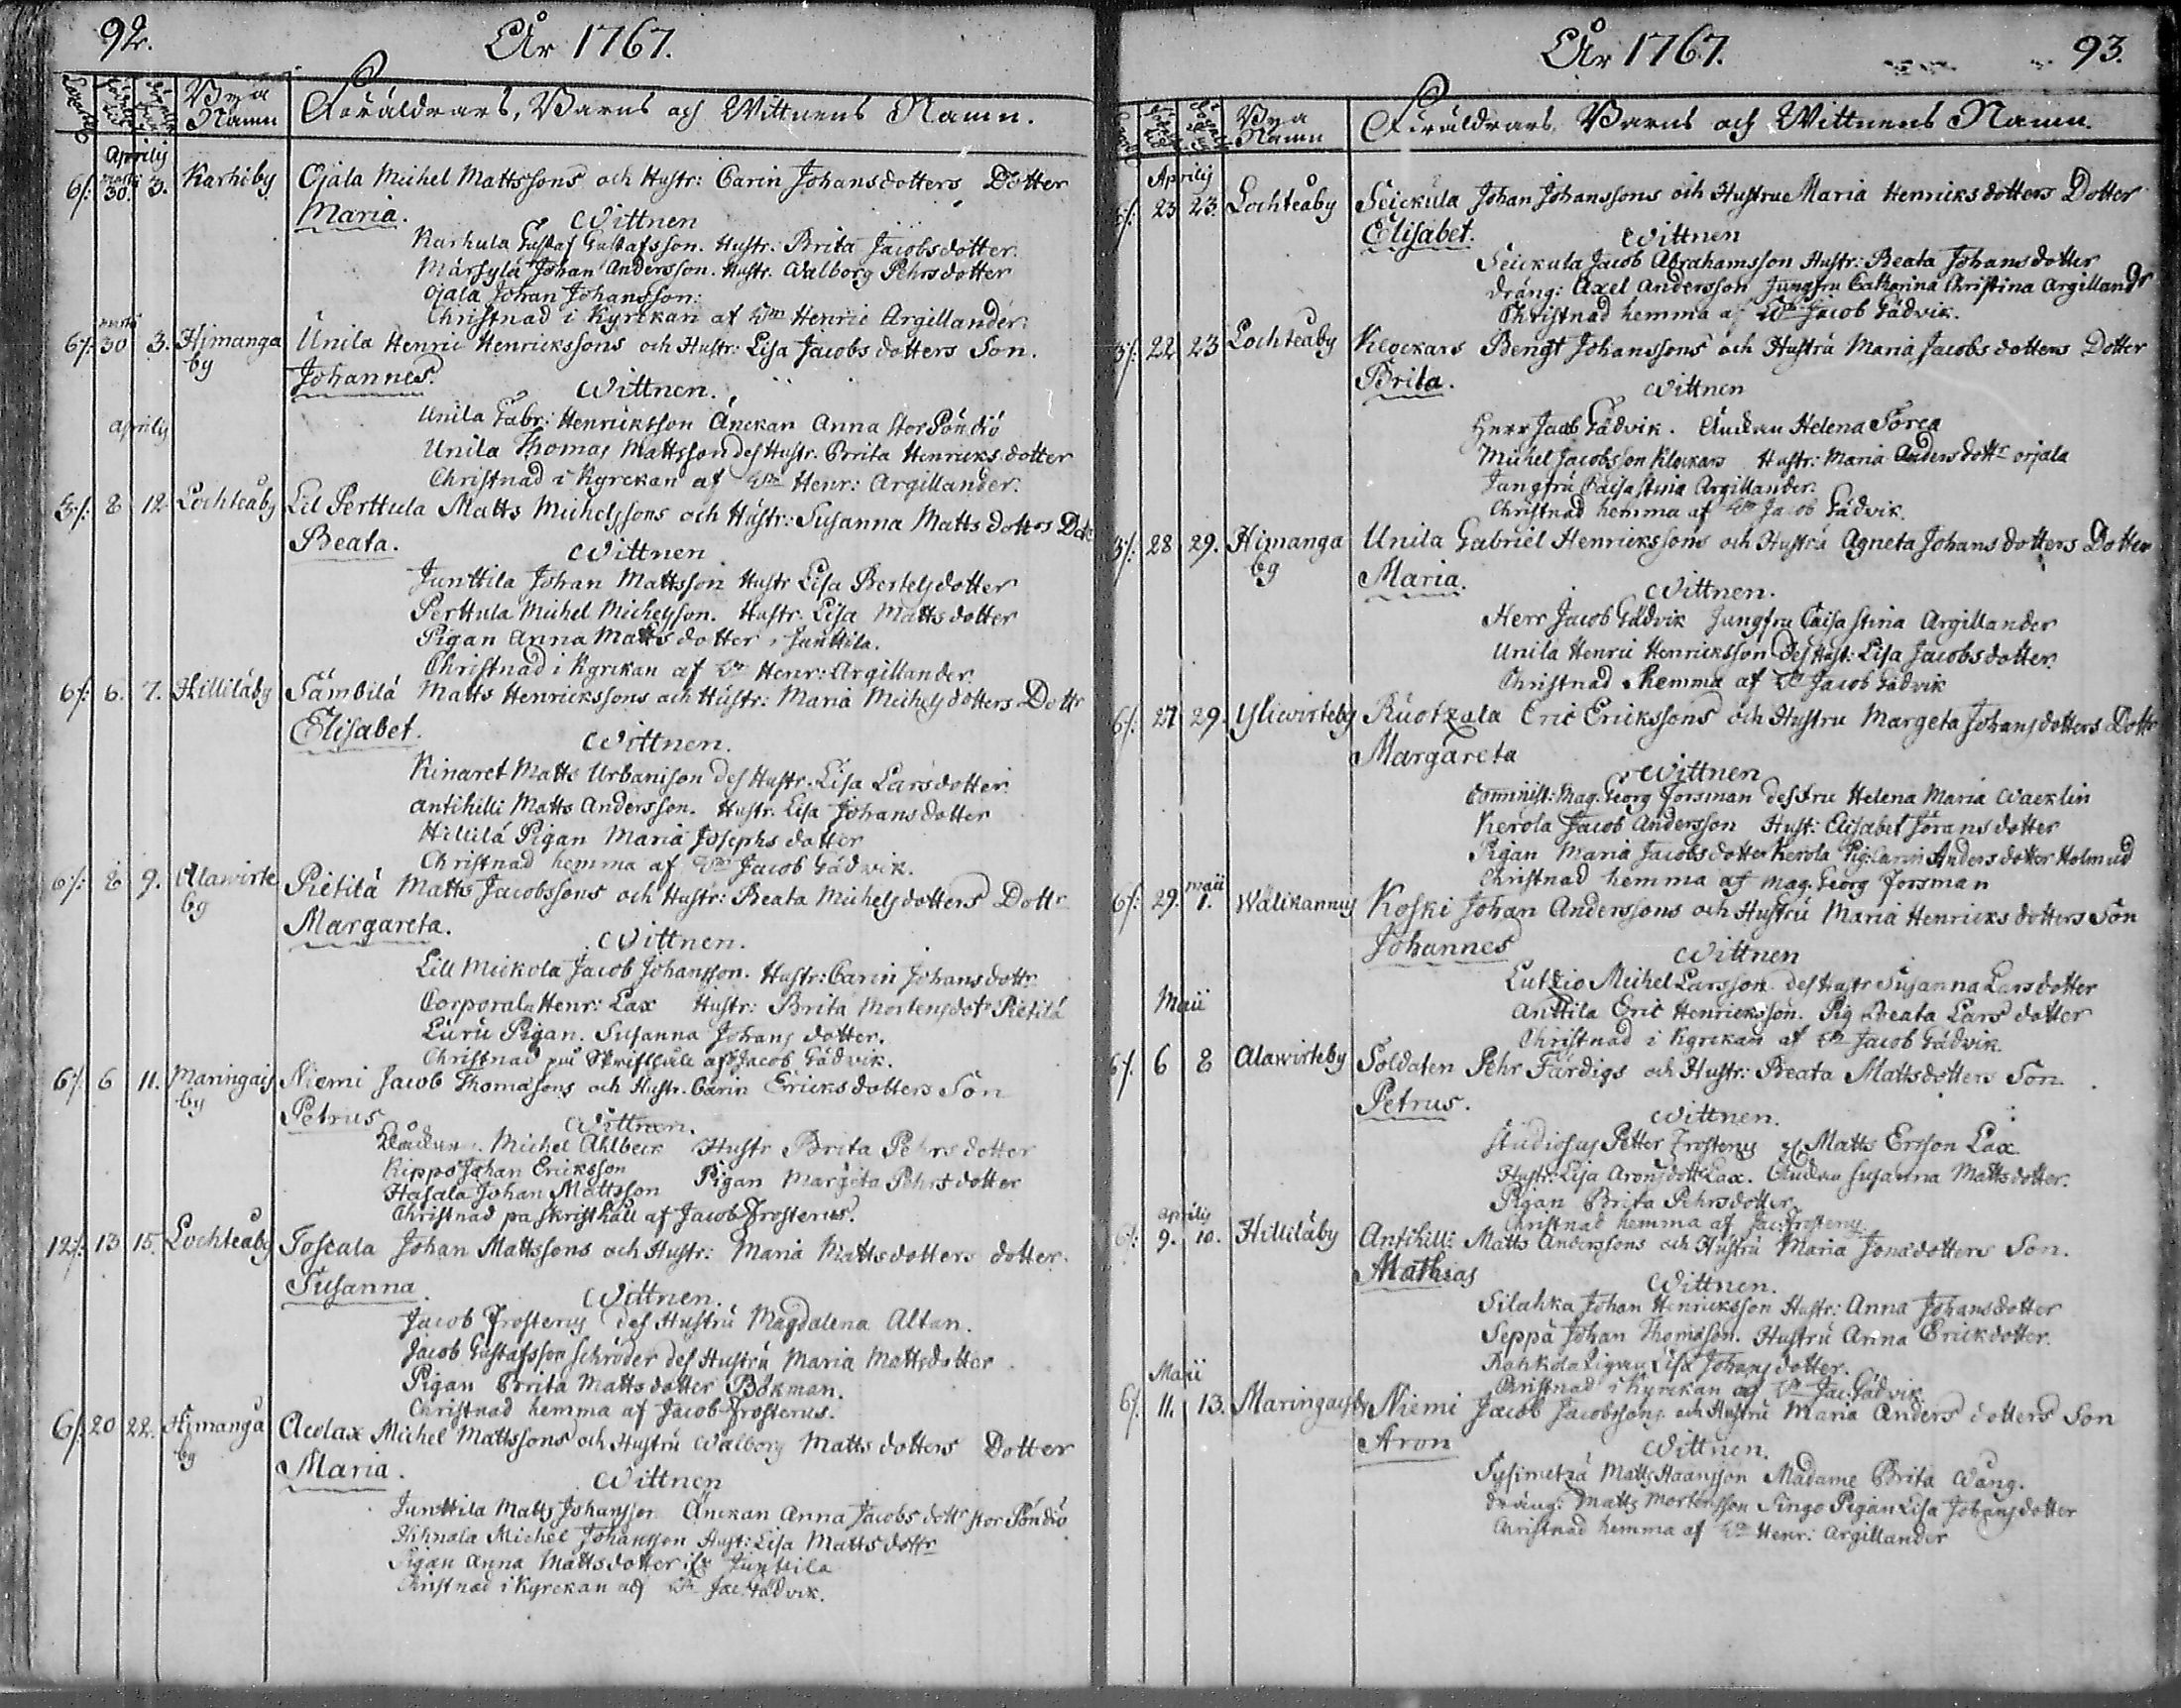 92.
År 1767.
Bya Namn
Föräldrars, Barns och Wittnens Namn.
Aprilij
6/: martii 30. 3. Karhiby Ojala Michel Mattssons och Hustr: Carin Johansdotters Dotter
Maria. Wittnen
Karhula Gustaf Gustafsson. Hustr: Brita Jacobsdotter.
Märsylä Johan Andersson. Hustr. Walborg Pehrsdotter
Ojala Johan Johansson:
Christnad i Kyrckan af Hr Henric Argillander.
6/: martii 30 3. Himanga by Unila Henric Henrickssons och Hustr: Lisa Jacobs dotters Son.
Johannes. Wittnen.
Aprilij
Unila Gabr: Henricksson Änckan Anna stor Pöndiö
Unila Thomas Mattsson des Hustr. Brita Henricks dotter
Christnad i Kyrckan af Hr Henr: Argillander.
3/: 8 12 Lochteåby Lil Perttula Matts Michelssons och Hustr: Susanna Matts dotters Dotr
Beata. Wittnen
Junttila Johan Mattsson Hustr Lisa Bertelsdotter
Perttula Michel Michelsson. Hustr. Lisa Matts dotter
Pigan Anna Matts dotter i Junttila.
Christnad i Kyrckan af Hr Henr: Argillander.
6/: 6. 7. Hilliläby Sämbilä Matts Henrickssons och Hustr: Maria Michels dotters Dottr
Elisabet. Wittnen.
Kinaret Matts Urbanison des Hustr. Lisa Larsdotter.
Antihilli Matts Andersson. Hustr. Lisa Johans dotter
Hillilä Pigan Maria Josephs dotter
Christnad hemma af Hr Jacob Gådvik.
6/: 8 9. Alawirte by Pietilä Matts Jacobssons och Hustr: Beata Michelsdotters Dottr
Margareta. Wittnen.
Lill Mickola Jacob Johansson. Hustr: Carin Johansdottr
Corporalen Henr: Lax Hustr: Brita Mortensdotr Pietilä
Luru Pigan. Susanna Johans dotter.
Christnad på Skrifthåll af Jacob Gådvik.
6/: 6 11. Maringais by Niemi Jacob Thomasons och Hustr. Carin Ericksdotters Son
Petrus Wittnen.
Michel Ahlbeck Hustr Brita Pehrs dotter
Kippo Johan Ericksson
Hasala Johan Mattsson Pigan Margeta Pehrs dotter
Christnad pa skrifthåll af Jacob Frosterus.
12/: 13 15. Lochteåby Toscala Johan Mattssons och Hustr: Maria Mattsdotters dotter.
Susanna. Wittnen.
Jacob Frosterus des Hustru Magdalena Altan.
Jacob Gustafsson Schröder des Hustru Maria Mattsdotter
Pigan Brita Matts dotter Bökman.
Christnad hemma af Jacob Frosterus.
6/: 20 22. Himanga by Aolax Michel Mattssons och Hustru Walborg Matts dotters Dotter
Maria. Wittnen
Junttila Matts Johansson Änckan Anna Jacobs dottr stor Pöndiö
Hihnala Michel Johansson Hust: Lisa Matts dottr
Pigan Anna Mattsdotter Junttila
Christnad i Kyrckan af Hr Jac: Gådvik.
År 1767.
93.
Bya Namn
Föräldrars, Barns och Wittnens Namn.
Aprilij
3/: 23 23. Lochteåby Seickula Johan Johanssons och Hustrue Maria Henricksdotters Dotter
Elisabet. Wittnen
Seickula Jacob Abrahamsson Hustr: Beata Johansdotter
dräng: Axel Andersson Jungfru Catharina Christina Argillandr
Christnad hemma af Hr Jacob Gådvik.
3/: 22 23 Lochteåby Klockars Bengt Johanssons och Hustru Maria Jacobs dotters Dotter
Brita. Wittnen
Herr Jacob Gådvik. Änckan Helena Forca
Michel Jacobsson Klockars Hustr: Maria Anders dottr orjala
Jungfru Caisa Stina Argillander.
Christnad hemma af Hr Jacob Gådvik.
3/: 28 29. Himanga by Unila Gabriel Henrickssons och Hustru Agneta Johans dotters Dotter
Maria. Wittnen.
Herr Jacob Gådvik Jungfru Caisa Stina Argillander
Unila Henric Henricksson des Hust: Lisa Jacobsdotter.
Christnad hemma af Hr Jacob Gådvik
6/: 27 29. Yliwirteby Ruotzala Eric Erickssons och Hustru Margeta Johansdotters Dottr
Margareta Wittnen
Comminist: Mag. Georg Forsman des fru Helena Maria Wacklin
Kerola Jacob Andersson Hust: Elisabet Göransdotter
Pigan Maria Jacobs dotter Kerola Pig: Carin Anders dotter Holmud
Christnad hemma af Mag. Georg Forsman
6/: 29. maii 1. Wälikannus Koski Johan Anderssons och Hustru Maria Henricks dotters Son
Johannes Wittnen
Lutzio Michel Larsson des Hustr Susanna Larsdotter
Anttila Eric Henricksson. Pig Beata Lars dotter
Christnad i Kyrckan af Hr Jacob Gådvik.
Maii
6/: 6 8 Alawirteby Soldaten Pehr Färdigs och Hustr: Beata Mattsdotters Son.
Petrus. Wittnen.
Studiosus Petter Frosterus Matts Ersson Lax
Hustr: Lisa Aronsdottr Lax. Änckan Susanna Mattsdotter.
Pigan Brita Pehrsdotter
Christnad hemma af Jac: Frosterus
6/: aprilis 9. 10. Hilliläby Antihilli Matts Anderssons och Hustru Maria Jonsdotters Son.
Mathias Wittnen.
Silahka Johan Henricksson Hustr: Anna Johansdotter
Seppä Johan Thomason. Hustru Anna Erickdotter.
Kahkola Pigan Lisa Johans dotter.
Christnad i Kyrckan af Hr Jac: Gådvik
Maii
6/: 11. 13. Maringais by Niemi Jacob Jacobssons och Hustru Maria Anders dotters Son
Aron Wittnen.
Sysimetzä Matts Haansson Madame Brita Wang.
dräng: Matts Mortensson Singo Pigan Lisa Johans dotter
Christnad hemma af Hr Henr: Argillander